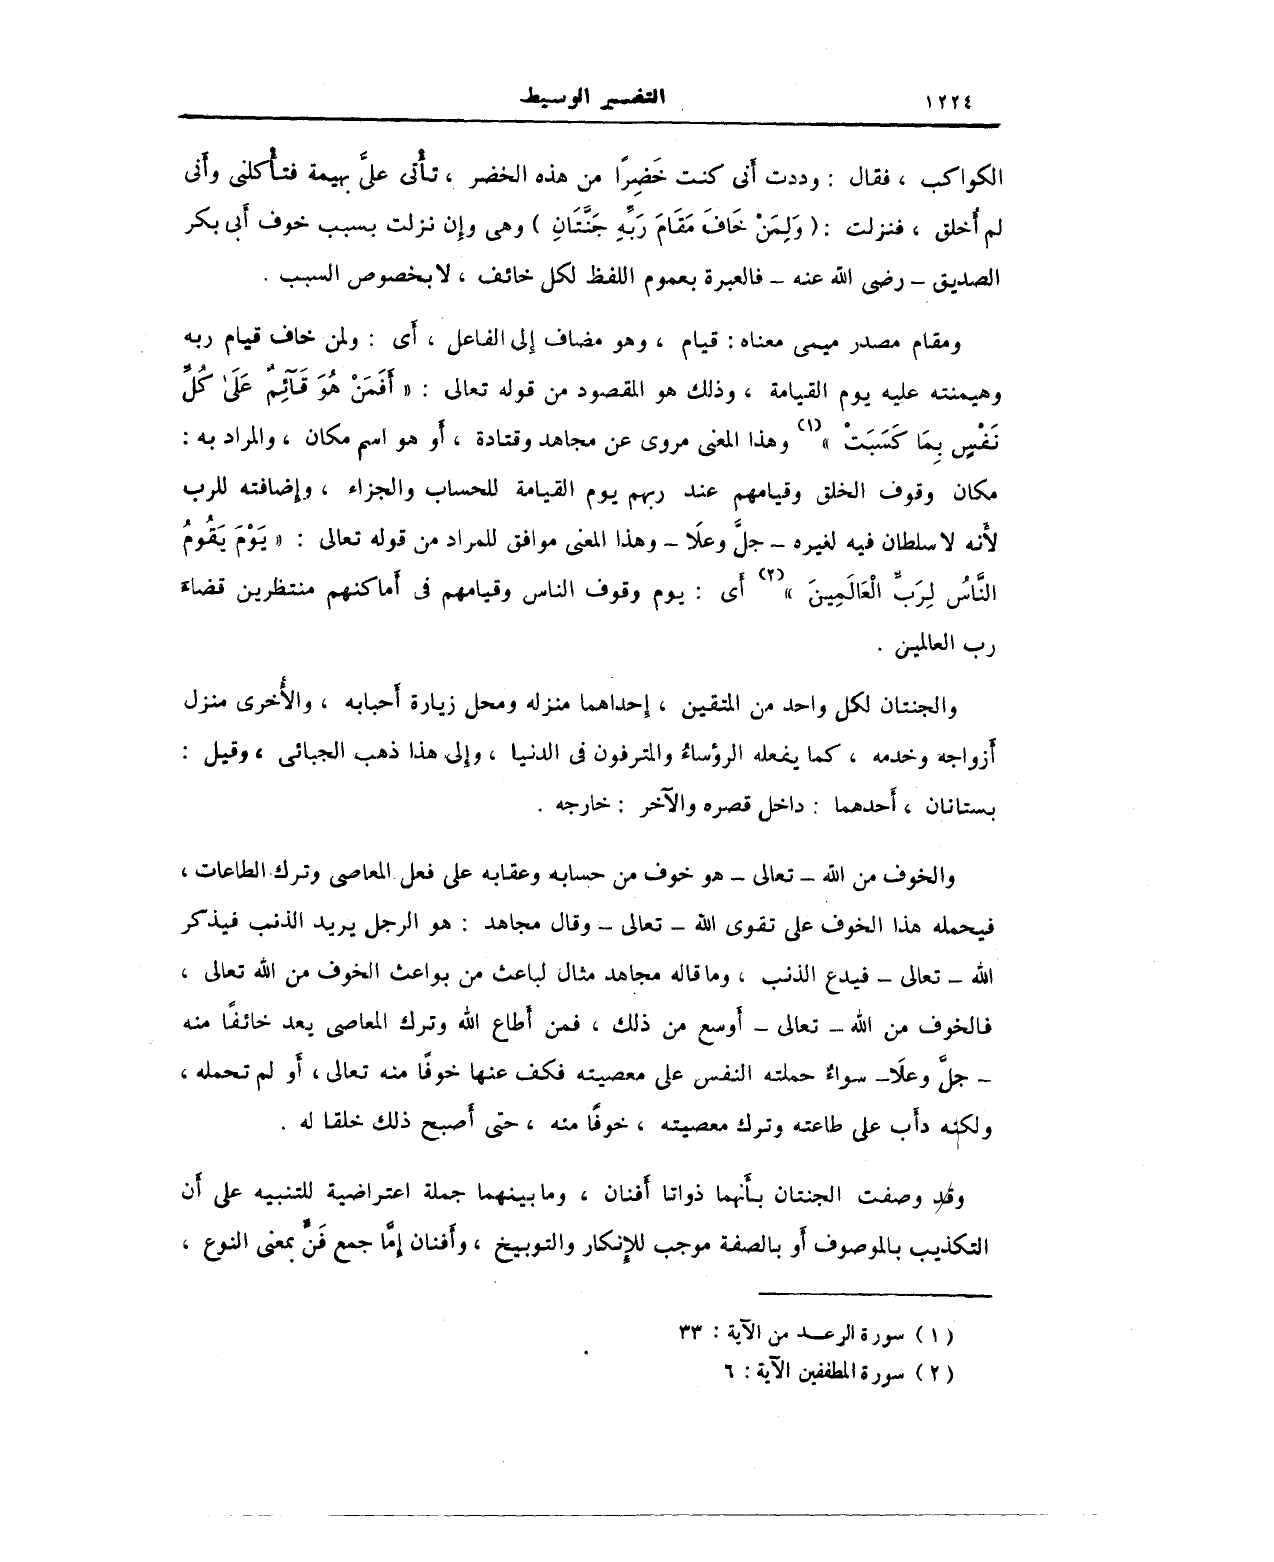 ١٢٢٤ التفسير الوسيط
الكواكب ، فقال : وددت أنى كنت خَضِرًا من هذه الخضر ، تأتى علىَّ بهيمة فتأكلنى وأنى
لم أُخلق ، فنزلت : ( وَلِمَنْ خَافَ مَقَامَ رَبِّهِ جَنَّتَانِ ) وهى وإن نزلت بسبب خوف أبى بكر
الصديق – رضى الله عنه – فالعبرة بعموم اللفظ لكل خائف ، لا بخصوص السبب .
ومقام مصدر ميمى معناه : قيام ، وهو مضاف إلى الفاعل ، أى : ولمن خاف قيام ربه
وهيمنته عليه يوم القيامة ، وذلك هو المقصود من قوله تعالى : « أَفَمَنْ هُوَ قَآئِمٌ عَلَىٰ كُلِّ
نَفْسٍ بِمَا كَسَبَتْ »(١) وهذا المعنى مروى عن مجاهد وقتادة ، أو هو اسم مكان ، والمراد به :
مكان وقوف الخلق وقيامهم عند ربهم يوم القيامة للحساب والجزاء ، وإضافته للرب
لأنه لا سلطان فيه لغيره – جلَّ وعلَا – وهذا المعنى موافق للمراد من قوله تعالى : « يَوْمَ يَقُومُ
النَّاسُ لِرَبِّ الْعَالَمِينَ »(٢) أى : يوم وقوف الناس وقيامهم فى أماكنهم منتظرين قضاءَ
رب العالمين .
والجنتان لكل واحد من المتقين ، إحداهما منزله ومحل زيارة أحبابه ، والأُخرى منزل
أزواجه وخدمه ، كما يفعله الرؤساءُ والمترفون فى الدنيا ، وإلى هذا ذهب الجبائى ، وقيل :
بستانان ، أحدهما : داخل قصره والآخر : خارجه .
والخوف من الله – تعالى – هو خوف من حسابه وعقابه على فعل المعاصى وترك الطاعات ،
فيحمله هذا الخوف على تقوى الله – تعالى – وقال مجاهد : هو الرجل يريد الذنب فيذكر
الله – تعالى – فيدع الذنب ، وما قاله مجاهد مثال لباعث من بواعث الخوف من الله تعالى ،
فالخوف من الله – تعالى – أوسع من ذلك ، فمن أطاع الله وترك المعاصى يعد خائفًا منه
– جلَّ وعلَا – سواءٌ حملته النفس على معصيته فكف عنها خوفًا منه تعالى ، أو لم تحمله ،
ولكنه دأب على طاعته وترك معصيته ، خوفًا منه ، حتى أصبح ذلك خلقا له .
وقد وصفت الجنتان بأنهما ذواتا أفنان ، وما بينهما جملة اعتراضية للتنبيه على أن
التكذيب بالموصوف أو بالصفة موجب للإنكار والتوبيخ ، وأفنان إمَّا جمع فَنٍّ بمعنى النوع ،
( ١ ) سورة الرعد من الآية : ٣٣
( ٢ ) سورة المطففين الآية : ٦